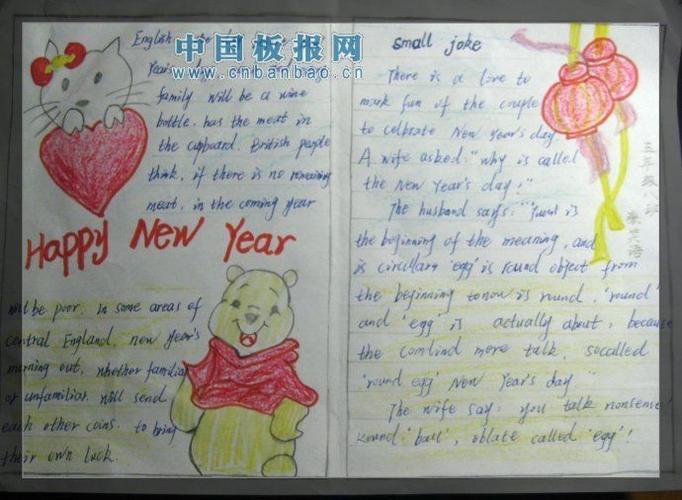 English
中国板报网
Year's
www.cnbanbao.cn
family will be a wine
bottle. has the meat in
the cupboard. British people
think, if there is no remaining
meat, in the coming year
Happy New Year
will be poor. in some areas of
central England, new year's
morning out, whether familiar
or unfamiliar. will send
each other coins. to bring
their own luck.
small joke
There is a love to
mark fun of the couple
to celbrate New Year's day.
A wife asked: "why is called
the New Year's day!"
The husband says: is
the beginning of the meaning, and
is circular, 'egg' is round object from
the beginning to now is round. 'round'
and 'egg is actually about, because
the comlind more talk. socalled
'round egg' New Year's day
The wife say: you talk nonsense!
Round: 'ball', oblate called 'egg'!
三年级八班